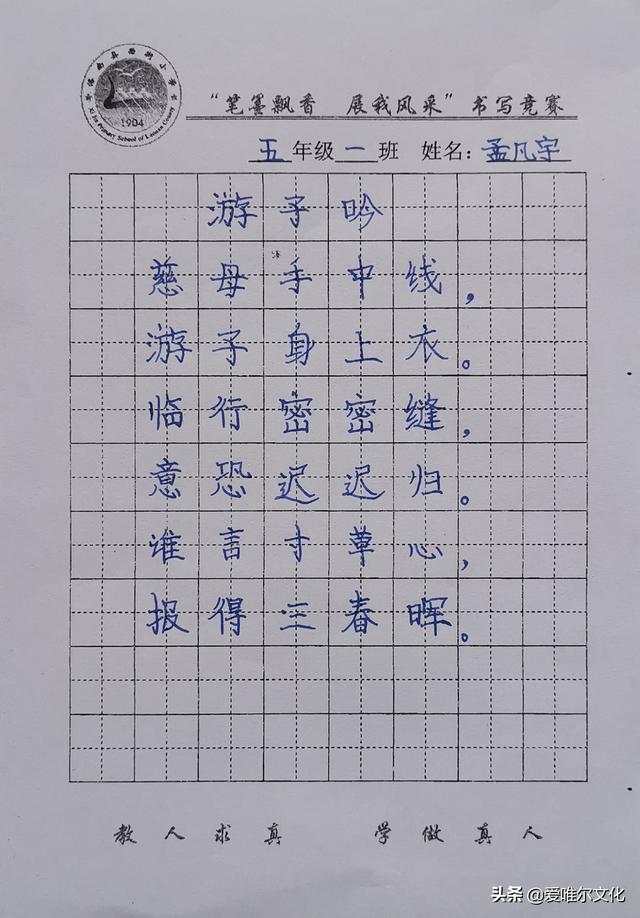 洛南县西街小学
1904
Xi Jie Primary School of Luonan County
“笔墨飘香 展我风采”书写竞赛
五年级一班 姓名：孟凡宇
游子吟
慈母手中线，
游子身上衣。
临行密密缝，
意恐迟迟归。
谁言寸草心，
报得三春晖。
教人求真 学做真人
头条 @爱唯尔文化